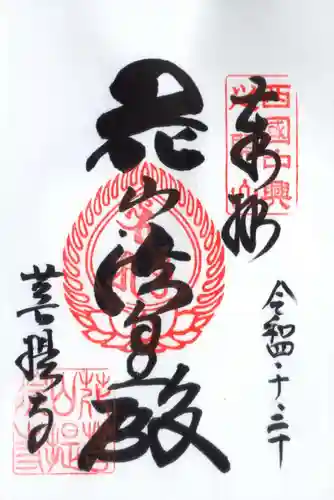 西國中興
奉拝
令和四・十・二十
花山法皇殿
菩提寺